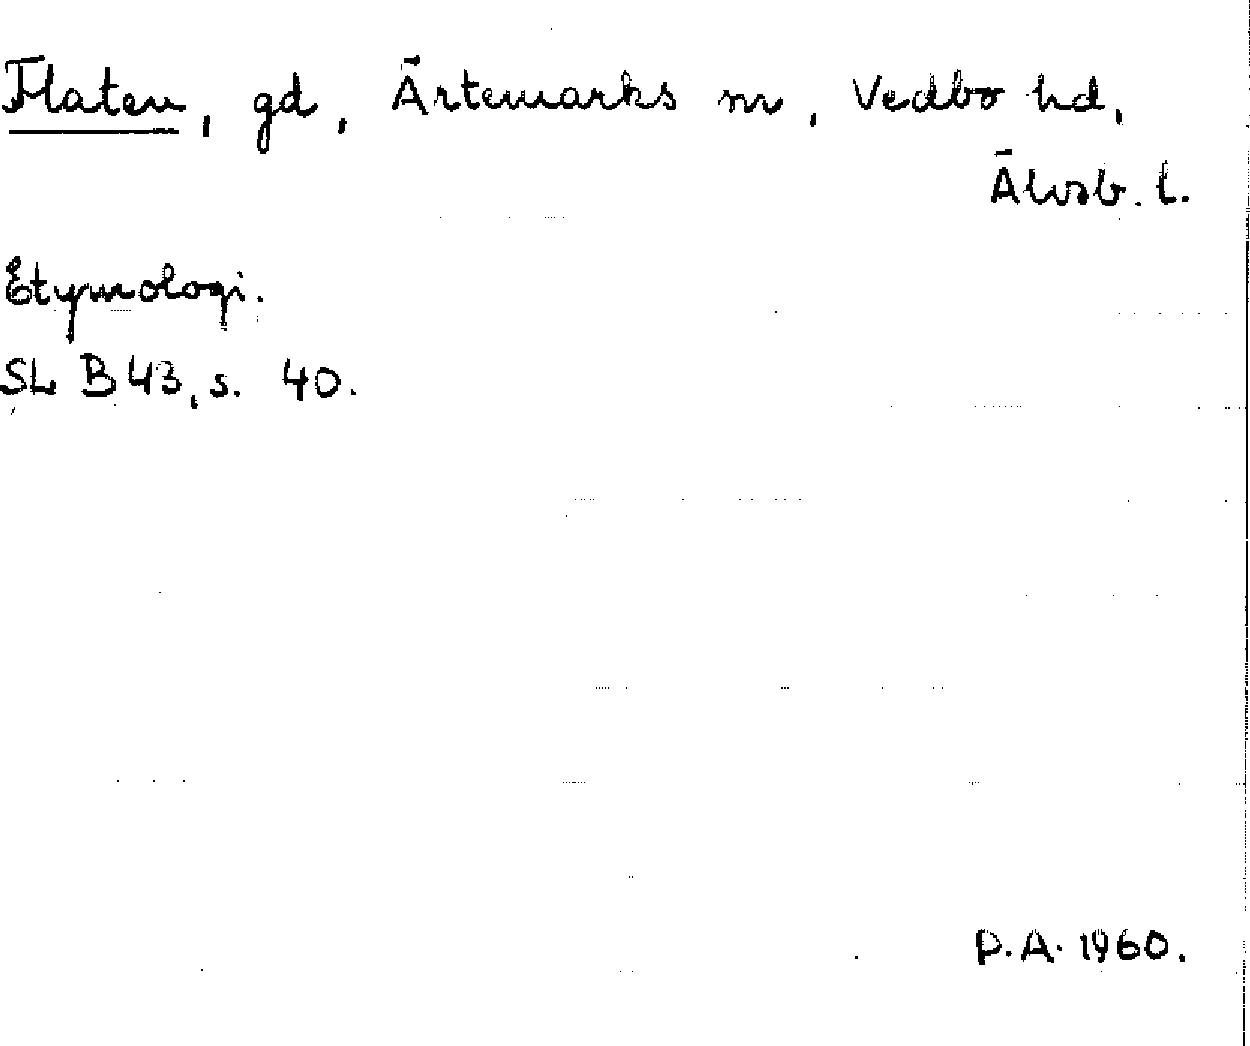 Flaten, gd, Ärtemarks sn, Vedbo hd,
Älvsb. l.
Etymologi.
SL B 43, s. 40.
P.A. 1960.